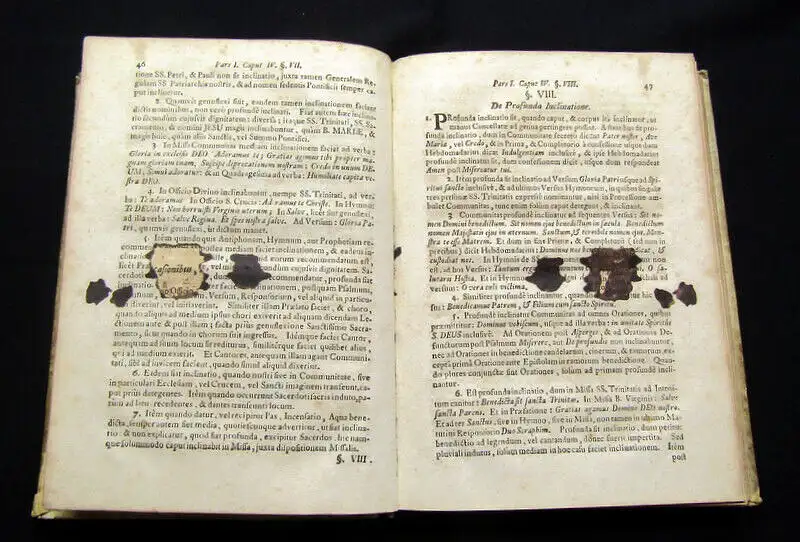 46 Pars I. Caput IV. §. VII.
tione SS. Petri, & Pauli non fit inclinatio, juxta tamen Generalem Re-
gulam SS Patriarchis nostris, & ad nomen sedentis Pontificis semper ca-
put inclinetur.
2. Quamvis genuflexi sint, eandem tamen inclinationem faciant
dictis nominibus, non verò profundè inclinati. Fiat autem hæc inclina-
tio secundum cujusvis dignitatem; diversa; itaque SS. Trinitati, SS. Sa-
cramento, & nomini JESU magis inclinabuntur, quàm B. MARIÆ, &
magis huic, quàm aliis Sanctis, vel Summo Pontifici.
3. In Missis Communitas mediam inclinationem faciat ad verba:
Gloria in excelsis DEO Adoramus te; Gratias agimus tibi propter ma-
gnam gloriam tuam, Suscipe deprecationem nostram: Credo in unum DE-
UM, Simul adoratur; & in Quadragesima ad verba: Humiliate capita ve-
stra DEO.
4. In Officio Divino inclinabuntur, nempe SS. Trinitati, ad ver-
ba: Te adoramus In Officio S. Crucis: Adoramus te Christe. In Hymno
Te DEUM; Non horruisti Virginis uterum; In Salve, licèt sint genuflexi,
ad illa verba: Salve Regina. Et spes nostra salve. Ad Versum: Gloria Pa-
tri, quamvis genuflexi, ut dictum manet.
5. Item quando quis Antiphonam, Hymnum, aut Prophetiam re-
mediam faciet inclinationem, & eadem in-
eorum cujusvis dignitatem. Sa-
casonibus
cerdos
recommendata, profundis
postquam Psalmum,
Versum, Responsorium, vel aliquid in particu-
dixerit, vel intimaverit. Similiter illam Prælato faciet, & choro,
quando aliquos ad medium ipsus chori exiverit ad aliquam dicendam Le-
ctionem ante & post illam; facta prius genuflexione Sanctissimo Sacra-
mento, sicut quando in chorum suit ingressus. Idémque faciet Cantor,
antequam ad suum locum se restituat, similitérque faciet quilibet alius,
qui ad medium exierit. Et Cantores, antequam illam agant Communi-
tati, sibi ad invicem faciant, quando simul aliquid dixerint.
6. Eadem fiet inclinatio, quando nostri sive in Communitate, sive
in particulari Ecclesiam, vel Crucem, vel Sancti imaginem transeunt, ca-
put prius detegentes. Item quando occurrunt Sacerdoti facris induto, pa-
rùm ad latus recedentes, & dantes transeunti locum.
7. Item quando datur, vel recipitur Pax, Incensatio, Aqua bene-
dicta, semper autem fiet media, quotiescunque advertitur, ut fiat inclina-
tio & non explicatur, quod fiat profunda, excipitur Sacerdos. hic nam-
que solummodo caput inclinabit in Missa, juxta dispositionem Missalis.
§. VIII.
Pars I. Caput IV. §. VIII. 47
§. VIII.
De Profunda Inclinatione.
1. PRofunda inclinatio fit, quando caput, & corpus ità inclinatur, ut
manus Cancellatæ ad genua pertingere possint. Astantibus de pro-
funda inclinatio, dum in Communitate secretò dicitur Pater noster, Ave
Maria, vel Credo, & in Prima, & Completorio à confessione usque dum
Hebdomadarius dicat Indulgentiam inclusivè, & ipse Hebdomadarius
profundè inclinatus sit, dum confessionem dicit, usque dum respondeat
Amen post Misereatur tui.
2. Item profunda inclinatio ad Versum Gloria Patri usque ad Spi-
ritui sancto inclusivè, & ad ultimos Versus Hymnorum, in quibus singulæ
tres personæ SS. Trinitatis expressè nominantur, nisi in Processione am-
bulet Communitas, nunc enim solùm caput detegunt, & inclinant.
3 Communitas profundè inclinatur ad sequentes Versus: Sit no-
men Domini benedictum. Sit nomen ejus benedictum in sæcula. Benedictum
nomen Majestatis ejus in æternum. Sanctum, & terribile nomen ejus, Mon-
stra te esse Matrem. Et dum in fine Primæ, & Completorii (id num in
peribus) dicit Hebdomadarius: Dominus nos benedicat, &
custodiat nos. In Hymnis de
est, ad hos Versus: Tantum ergo O sa-
lutaris Hostia. Et in Hymno
versum: O vera cœli victima.
4. Similiter profundè inclinantur, quando
sus: Benedicamus Patrem, & Filium cum sancto Spiritu.
5. Profundè inclinatur Communitas ad omnes Orationes, quibus
præmittitur: Dominus vobiscum, usque ad illa verba: in unitate Spiritus
S. DEUS inclusivè. Ad Orationem post Asperges, & ad Orationem De-
functorum post Psalmum Miserere, aut De profundis non inclinantur,
nec ad Orationes in benedictione candelarum, cinerum, & ramorum ex-
cepta prima Oratione ante Epistolam in ramorum benedictione. Quan-
do plures conjunctæ sint Orationes, solùm ad primam profundè incli-
nantur.
6. Est profunda inclinatio, dum in Missa SS. Trinitatis ad Introi-
tum canitur: Benedicta sit sancta Trinitas. In Missa B. Virginis: Salve
sancta Parens. Et in Præfatione: Gratias agamus Domino DEO nostro.
Et ad ter Sanctus, sive in Hymno, sive in Missa, non tamen in ultimo Ma-
tutini Responsorio Duo Seraphim. Profunda fit inclinatio, dum petitur
benedictio ad legendum, vel cantandum, donec fuerit impertita. Sed
pluviali indutus, solùm mediam in hoc casu faciet inclinationem. Item
post